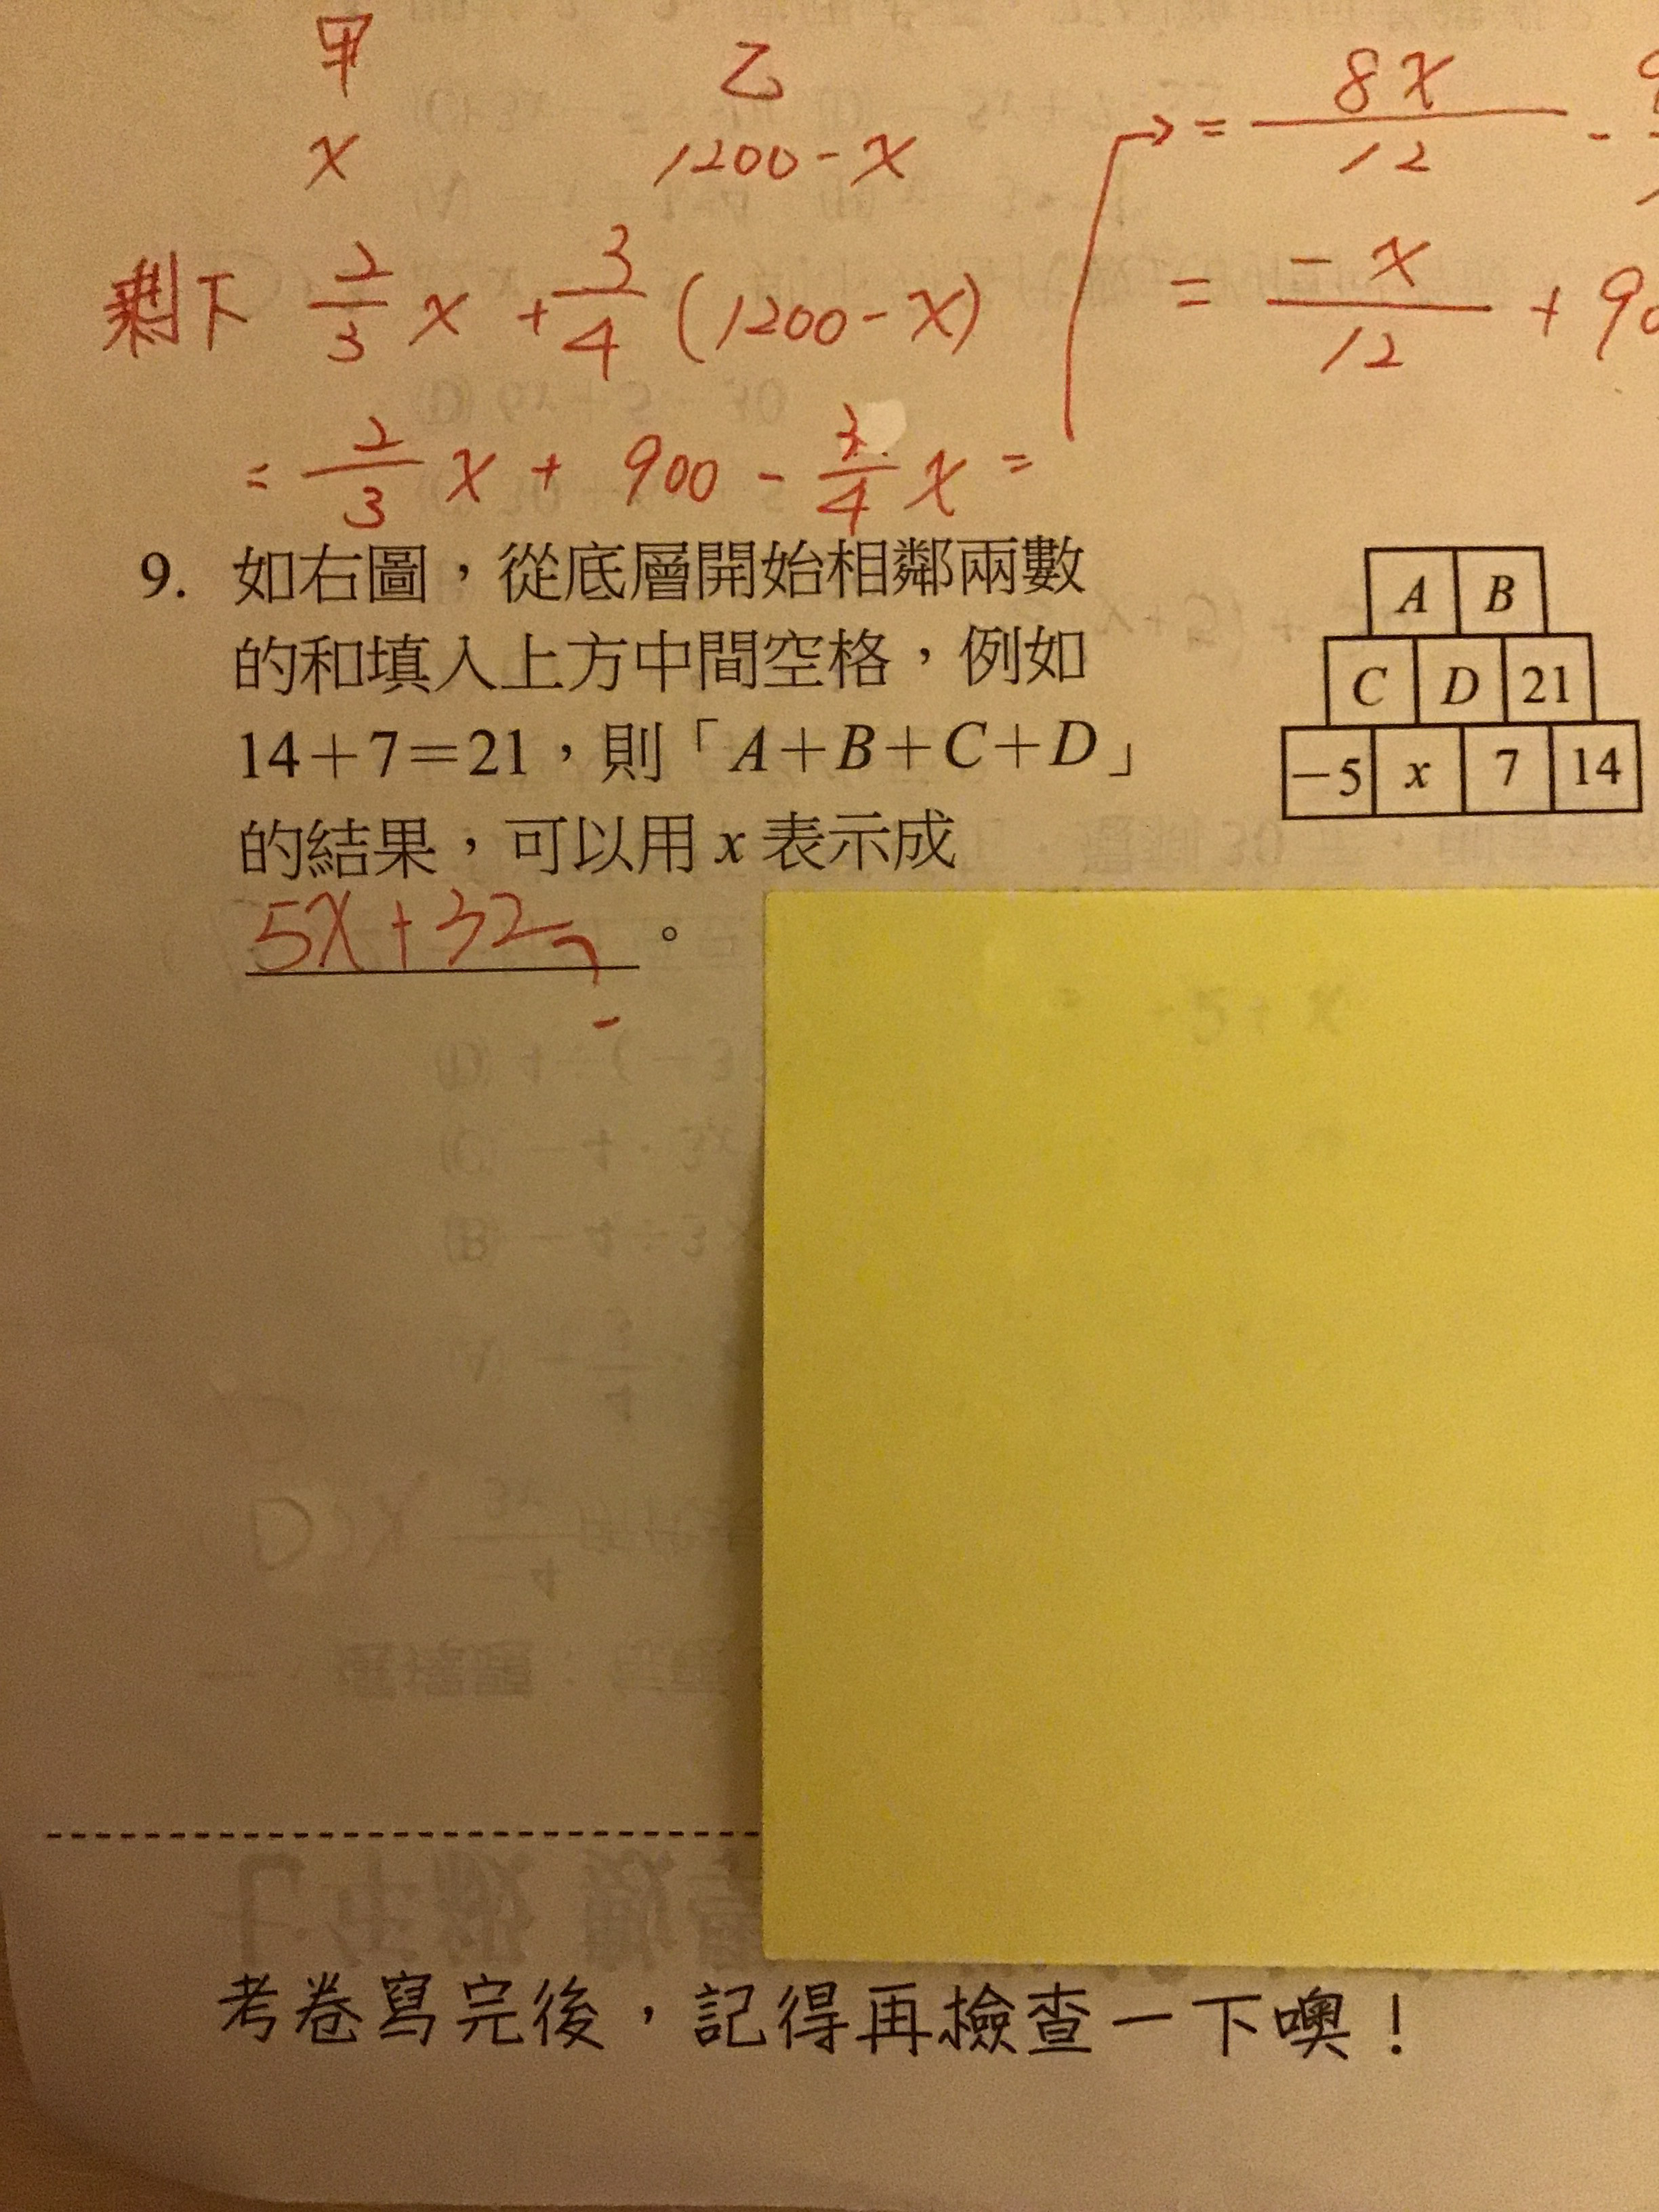 甲 乙
x 1200-x → = 8x/12 -
剩下 2/3 x + 3/4 (1200-x) = -x/12 + 90
= 2/3 x + 900 - 3/4 x =
9. 如右圖，從底層開始相鄰兩數
的和填入上方中間空格，例如
14＋7＝21，則「A＋B＋C＋D」
的結果，可以用 x 表示成
5x+32 。
A B
C D 21
－5 x 7 14
考卷寫完後，記得再檢查一下噢！